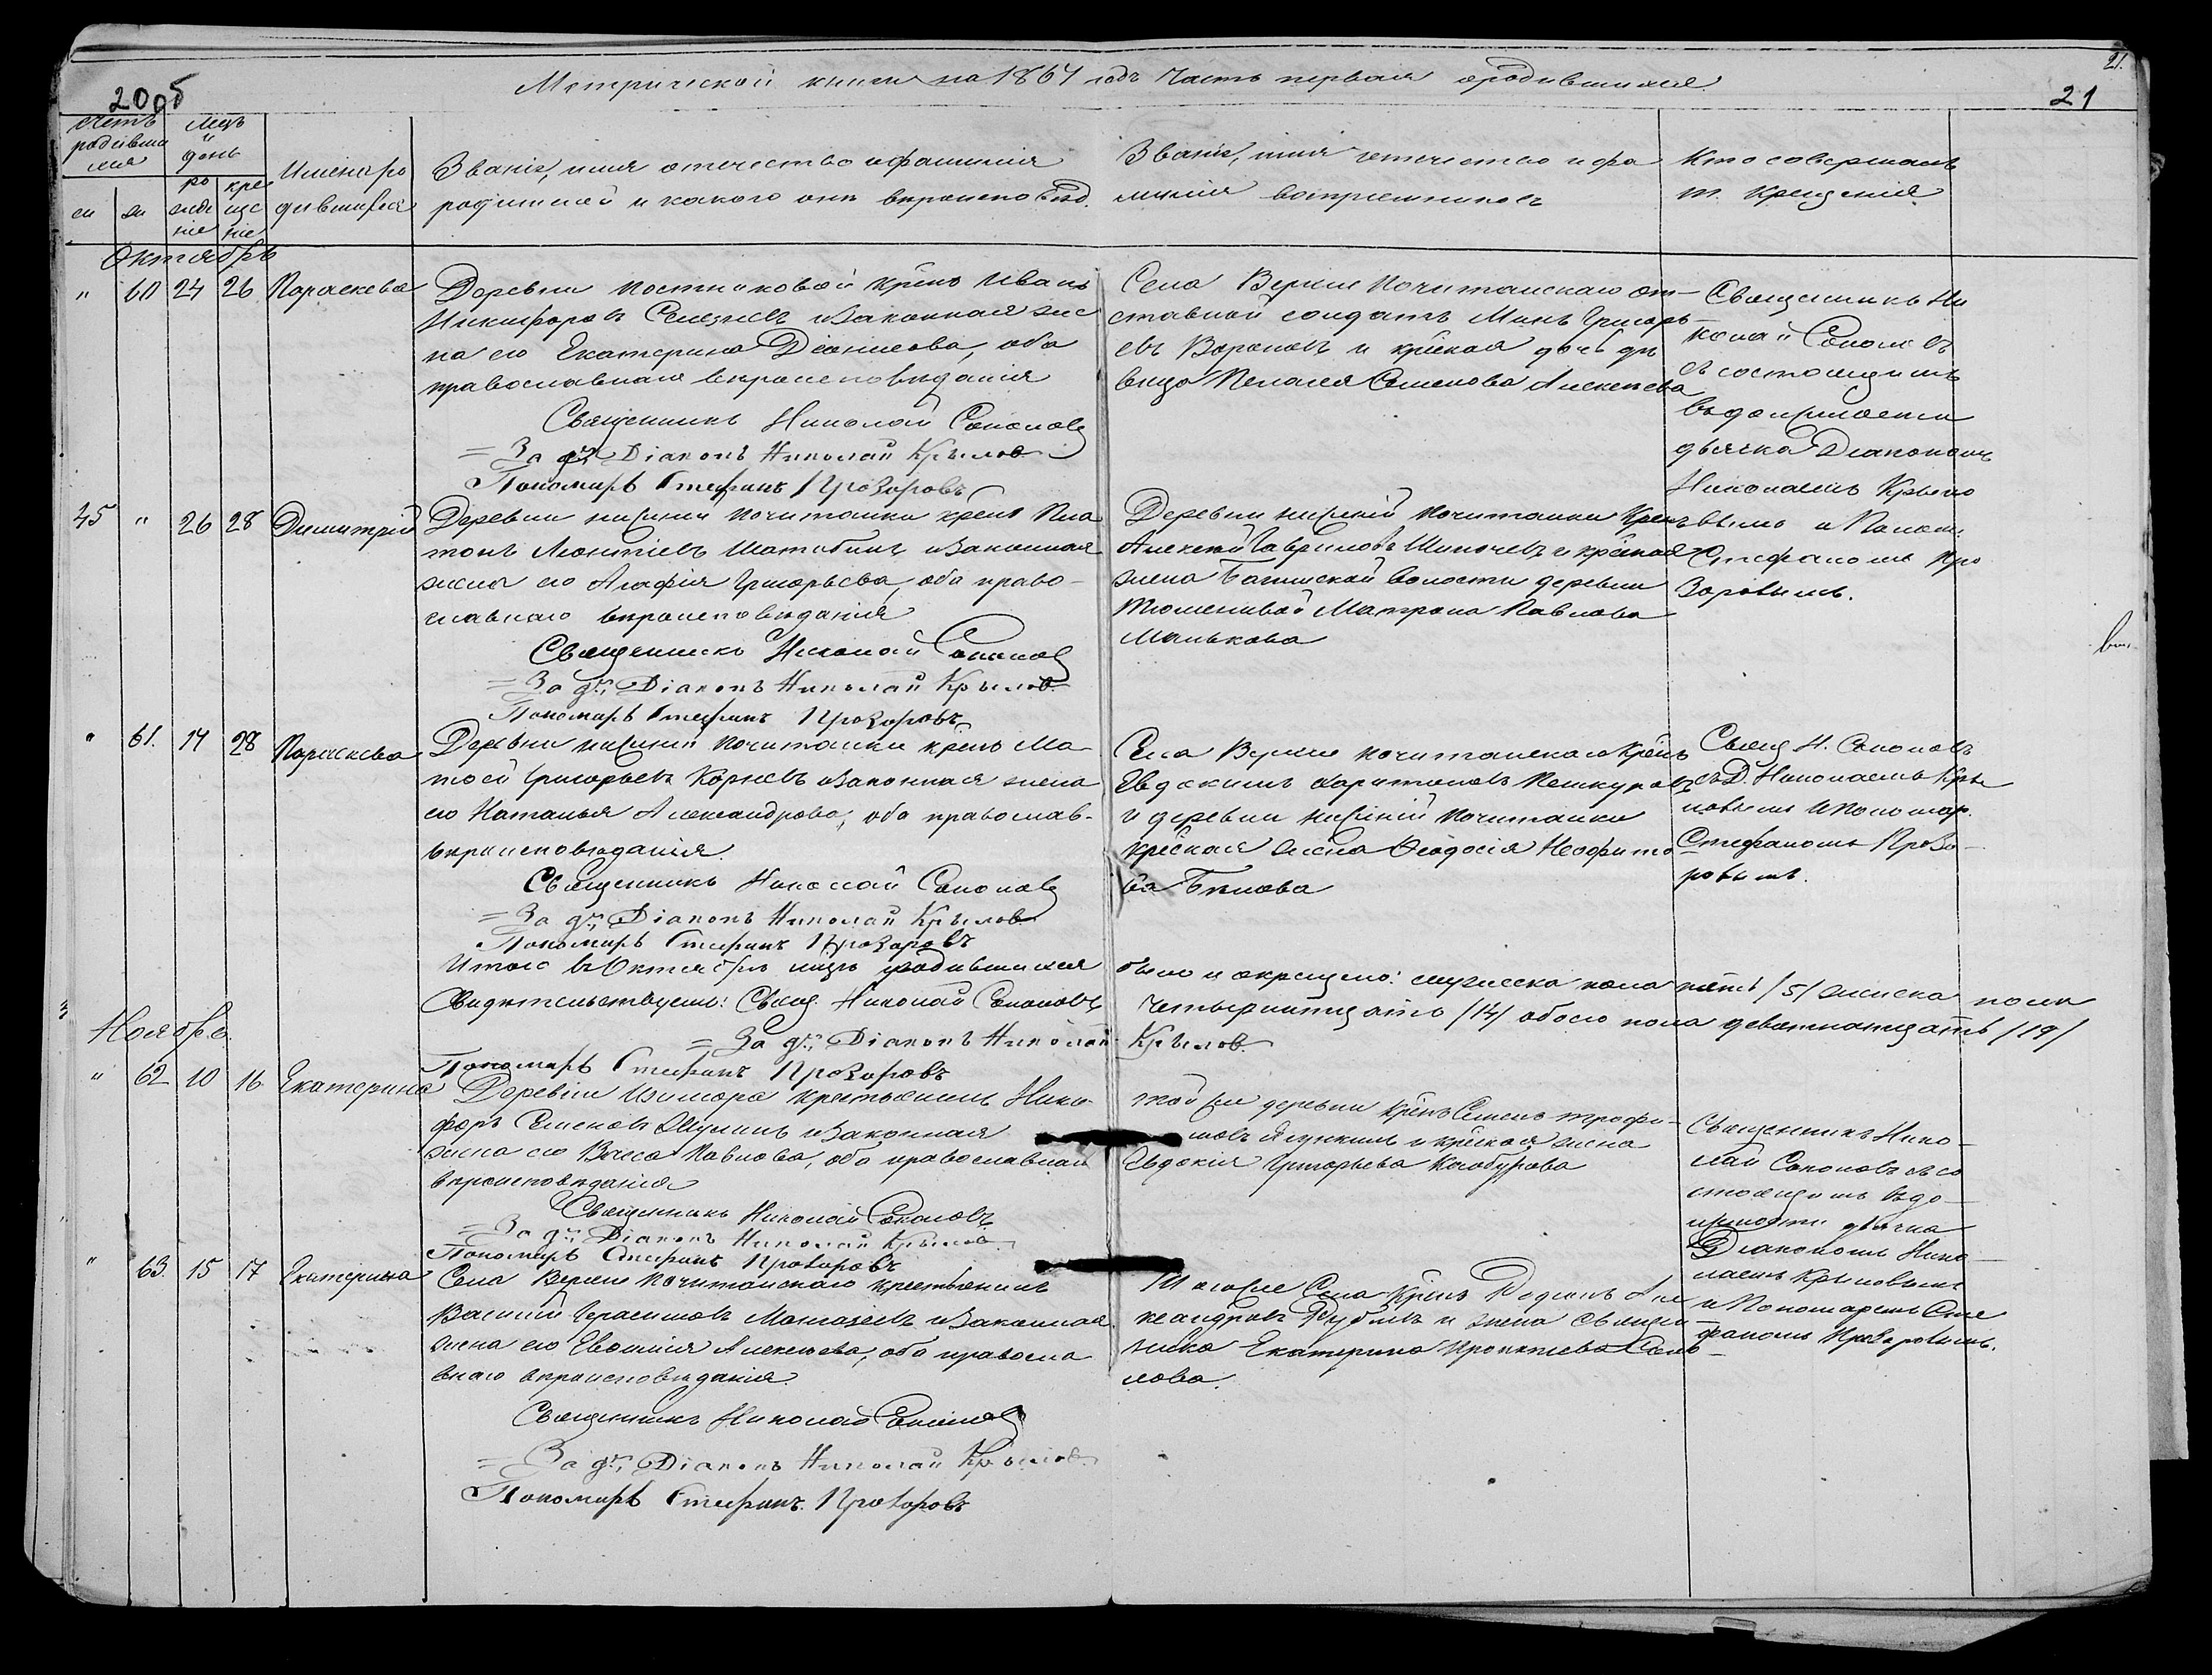 Метрической книги на 1864 годъ часть первая о родившихся
20об
21.
21
Счетъ родившихся
мцъ и день
Имена родившихся
Званіе, имя отечество и фамилія
родителей и какого они вѣроисповѣд.
Званіе, имя отечество и фа
милія воспріемниковъ
Кто совершалъ
т. крещенія.
рожденіе
крещеніе
Октябрь
" 60 24 26 Параскева
Деревни Постниковой крѣнъ Иванъ
Никифоровъ Селезневъ и законная же
на его Екатерина Діонисова, оба
православнаго вѣроисповѣданія
Священникъ Николай Соколовъ
= За дч. Діаконъ Николай Крыловъ
Пономарь Стефанъ Прозоровъ
Села Верхне Почитанскаго от-
ставной солдатъ Григорь-
евъ Вороновъ и крѣская дочь дѣ
вица Пелагея Семенова Алексеева
Священникъ Ни
колай Соколовъ
съ состоящимъ
въ должности
дьячка Діакономъ
Николаемъ Крыло
вымъ и Поном.
Стефаномъ Про
зоровымъ.
45 " 26 28 Димитрій
Деревни нижней Почитанки крѣнъ Пла
тонъ Леонтіевъ и законная
жена его Агафія Григорьева, оба право-
славнаго вѣроисповѣданія
Священникъ Николай Соколовъ
= За дч. Діаконъ Николай Крыловъ
Пономарь Стефанъ Прозоровъ
Деревни нижней Почитанки крѣнъ
Алексей Гавриловъ и крѣская
жена волости деревни
Тюменевой Матрона Павлова
Манькова
" 61. 14 28 Параскева
Деревни нижней Почитанки крѣнъ Ма-
тѳей Григорьевъ Корневъ и законная жена
его Наталья Александрова, оба православ-
вѣроисповѣданія.
Священникъ Николай Соколовъ
= За дч. Діаконъ Николай Крыловъ
Пономарь Стефанъ Прозоровъ
Села Верхне Почитанскаго крѣнъ
Евдокимъ Харитоновъ
и деревни нижней Почитанки
крѣская жена Ѳеодосія Неофито
ва Бѣлова
Свящ Н. Соколовъ
съ Д. Николаемъ Кры
ловымъ и Пономар.
Стефаномъ Прозо-
ровымъ.
Итого въ Октябрѣ мцѣ родившихся было и окрещено: мужеска пола пять /5/ женска пола
Свидѣтельствуемъ: Свящ. Николай Соколовъ
четырнатцать /14/ обоего пола девятнатцать /19/
= За дч. Діаконъ Николай Крыловъ
Пономарь Стефанъ Прозоровъ
Ноябрь.
" 62 10 16 Екатерина
Деревни Ижмора крестьянинъ Ники-
форъ Семеновъ и законная
жена его Васса Павлова, оба православнаго
вѣроисповѣданія
Священникъ Николай Соколовъ
= За дч. Діаконъ Николай Крыловъ
Пономарь Стефанъ Прозоровъ
той же деревни крѣнъ Семенъ Трофи-
мовъ и крѣская жена
Евдокія Григорьева
Священникъ Нико-
лай Соколовъ съ со
стоящимъ въ до-
лжности дьячка
Діакономъ Нико-
лаемъ Крыловымъ
и Пономаремъ Сте
фаномъ Прозоровымъ.
" 63. 15 17 Екатерина
Села Верхне Почитанскаго крестьянинъ
Василій Герасимовъ и законная
жена его Евфимія Алексеева, оба правосла
внаго вѣроисповѣданія.
Священникъ Николай Соколовъ
= За дч. Діаконъ Николай Крыловъ
Пономарь Стефанъ Прозоровъ
Того же Села крѣнъ Родіонъ Але
ксандровъ и жена священ-
ника Екатерина Соко-
лова.